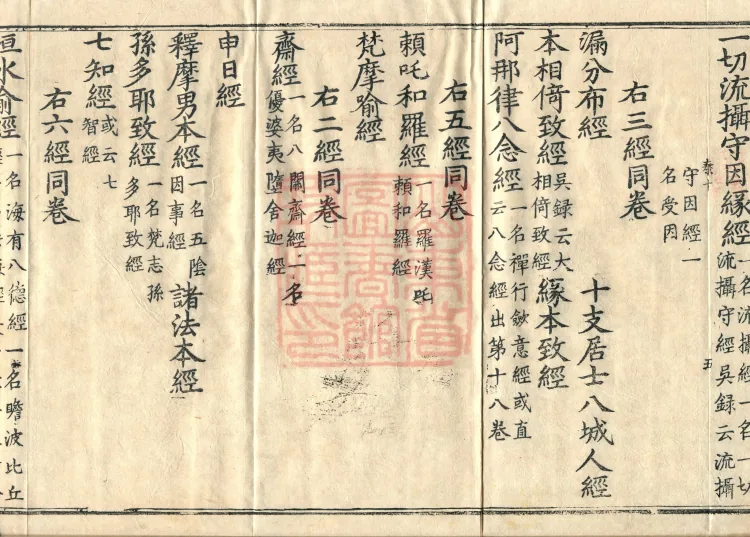 一切流攝守因緣經 一名流攝經一名一切
流攝守經吳録云流攝
守因經一
名受因
泰十 五
右三經同卷
漏分布經 十支居士八城人經
本相倚致經 吳録云大
相倚致經 緣本致經
阿那律八念經 一名禪行斂意經或直
云八念經出第十八卷
右五經同卷
賴吒和羅經 一名羅漢吒
賴和羅經
梵摩喻經
右二經同卷
齋經 一名八關齋經二名
優婆夷墮舍迦經
申日經
釋摩男本經 一名五陰
因事經 諸法本經
孫多耶致經 一名梵志孫
多耶致經
七知經 或云七
智經
右六經同卷
恒水喻經 一名海有八德經一名瞻波比丘